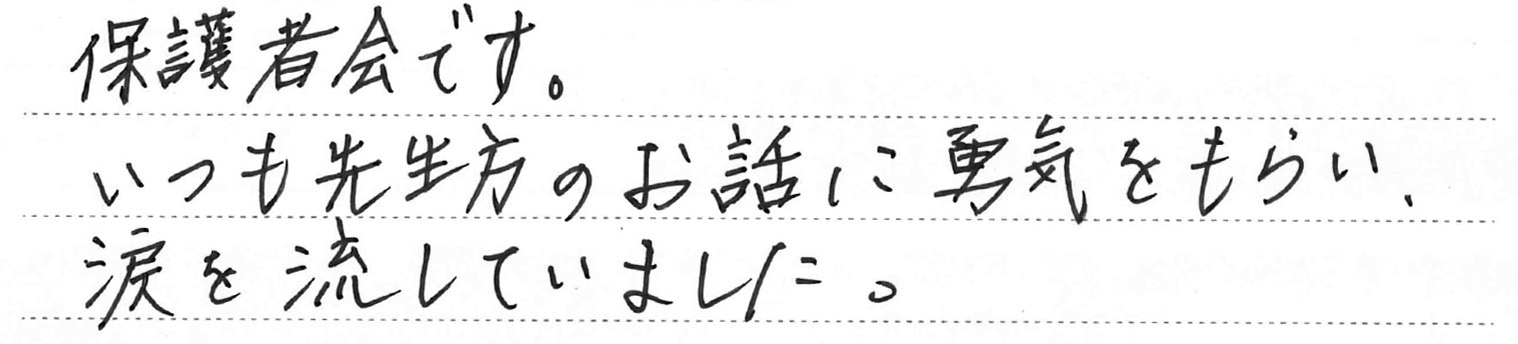 保護者会です。
いつも先生方のお話に勇気をもらい、
涙を流していました。